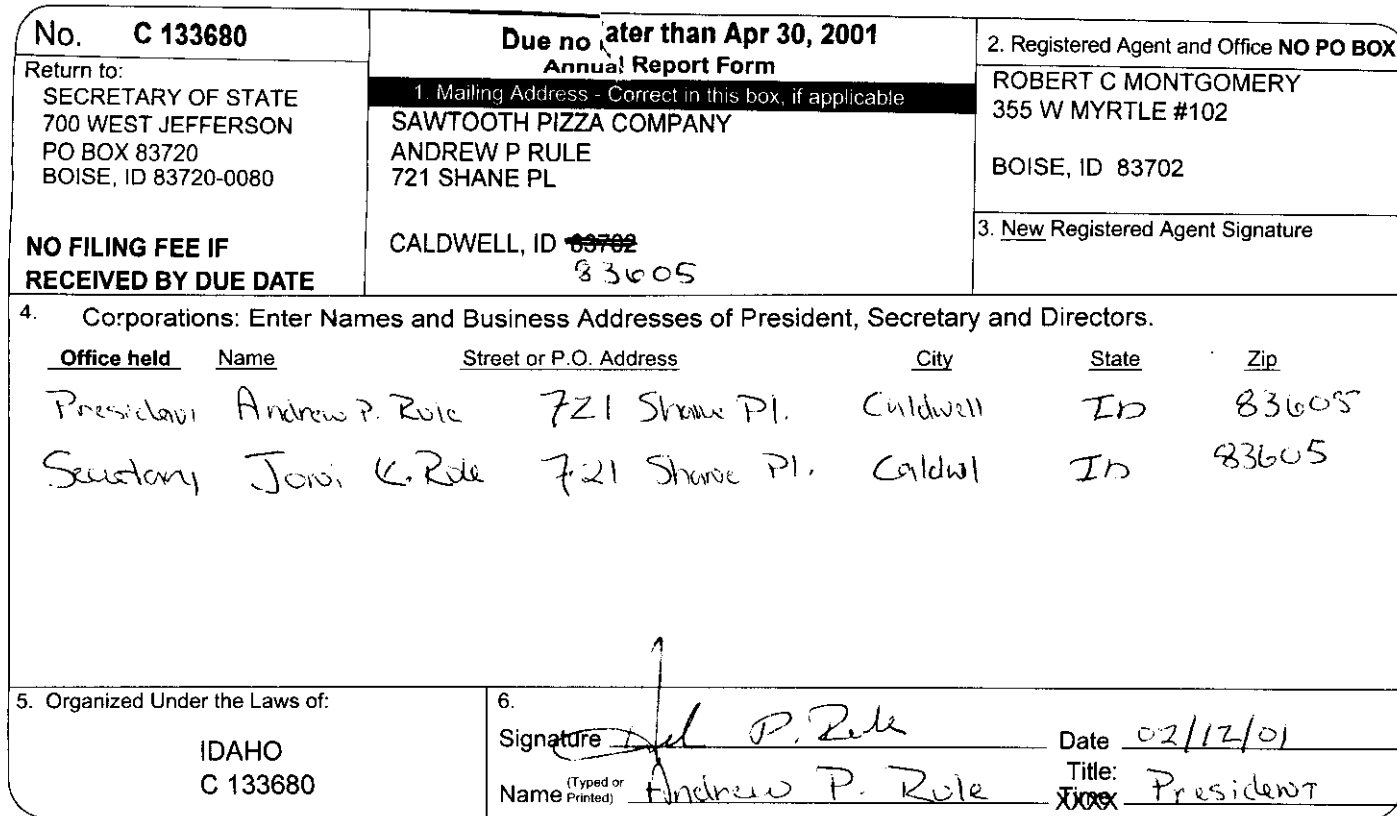 No. C 133680
Return to:
SECRETARY OF STATE
700 WEST JEFFERSON
PO BOX 83720
BOISE, ID 83720-0080
NO FILING FEE IF
RECEIVED BY DUE DATE
Due no later than Apr 30, 2001
Annual Report Form
1. Mailing Address - Correct in this box, if applicable
SAWTOOTH PIZZA COMPANY
ANDREW P RULE
721 SHANE PL
CALDWELL, ID 83702
83605
2. Registered Agent and Office NO PO BOX
ROBERT C MONTGOMERY
355 W MYRTLE #102
BOISE, ID 83702
3. New Registered Agent Signature
4. Corporations: Enter Names and Business Addresses of President, Secretary and Directors.
Office held Name Street or P.O. Address City State Zip
President Andrew P. Rule 721 Shane Pl. Caldwell ID 83605
Secretary K. Rule 721 Shane Pl. Caldwl ID 83605
5. Organized Under the Laws of:
IDAHO
C 133680
6.
Signature P. Rule Date 02/12/01
Name (Typed or Printed) Andrew P. Rule Title: President